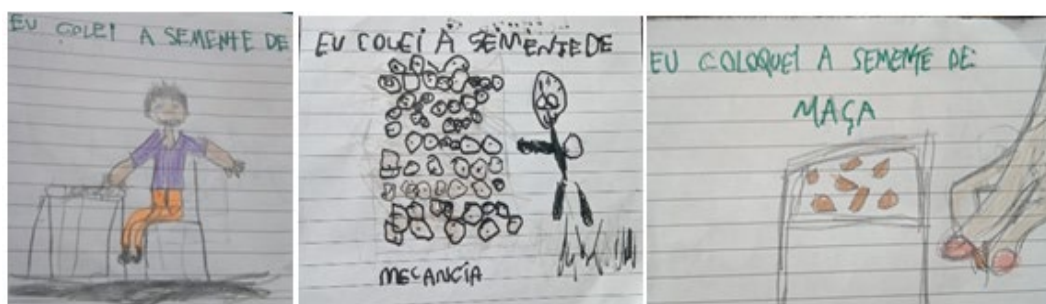 EU COLEI A SEMENTE DE
EU COLEI A SEMENTE DE
MECANCIA
EU COLOQUEI A SEMENTE DE:
MAÇA